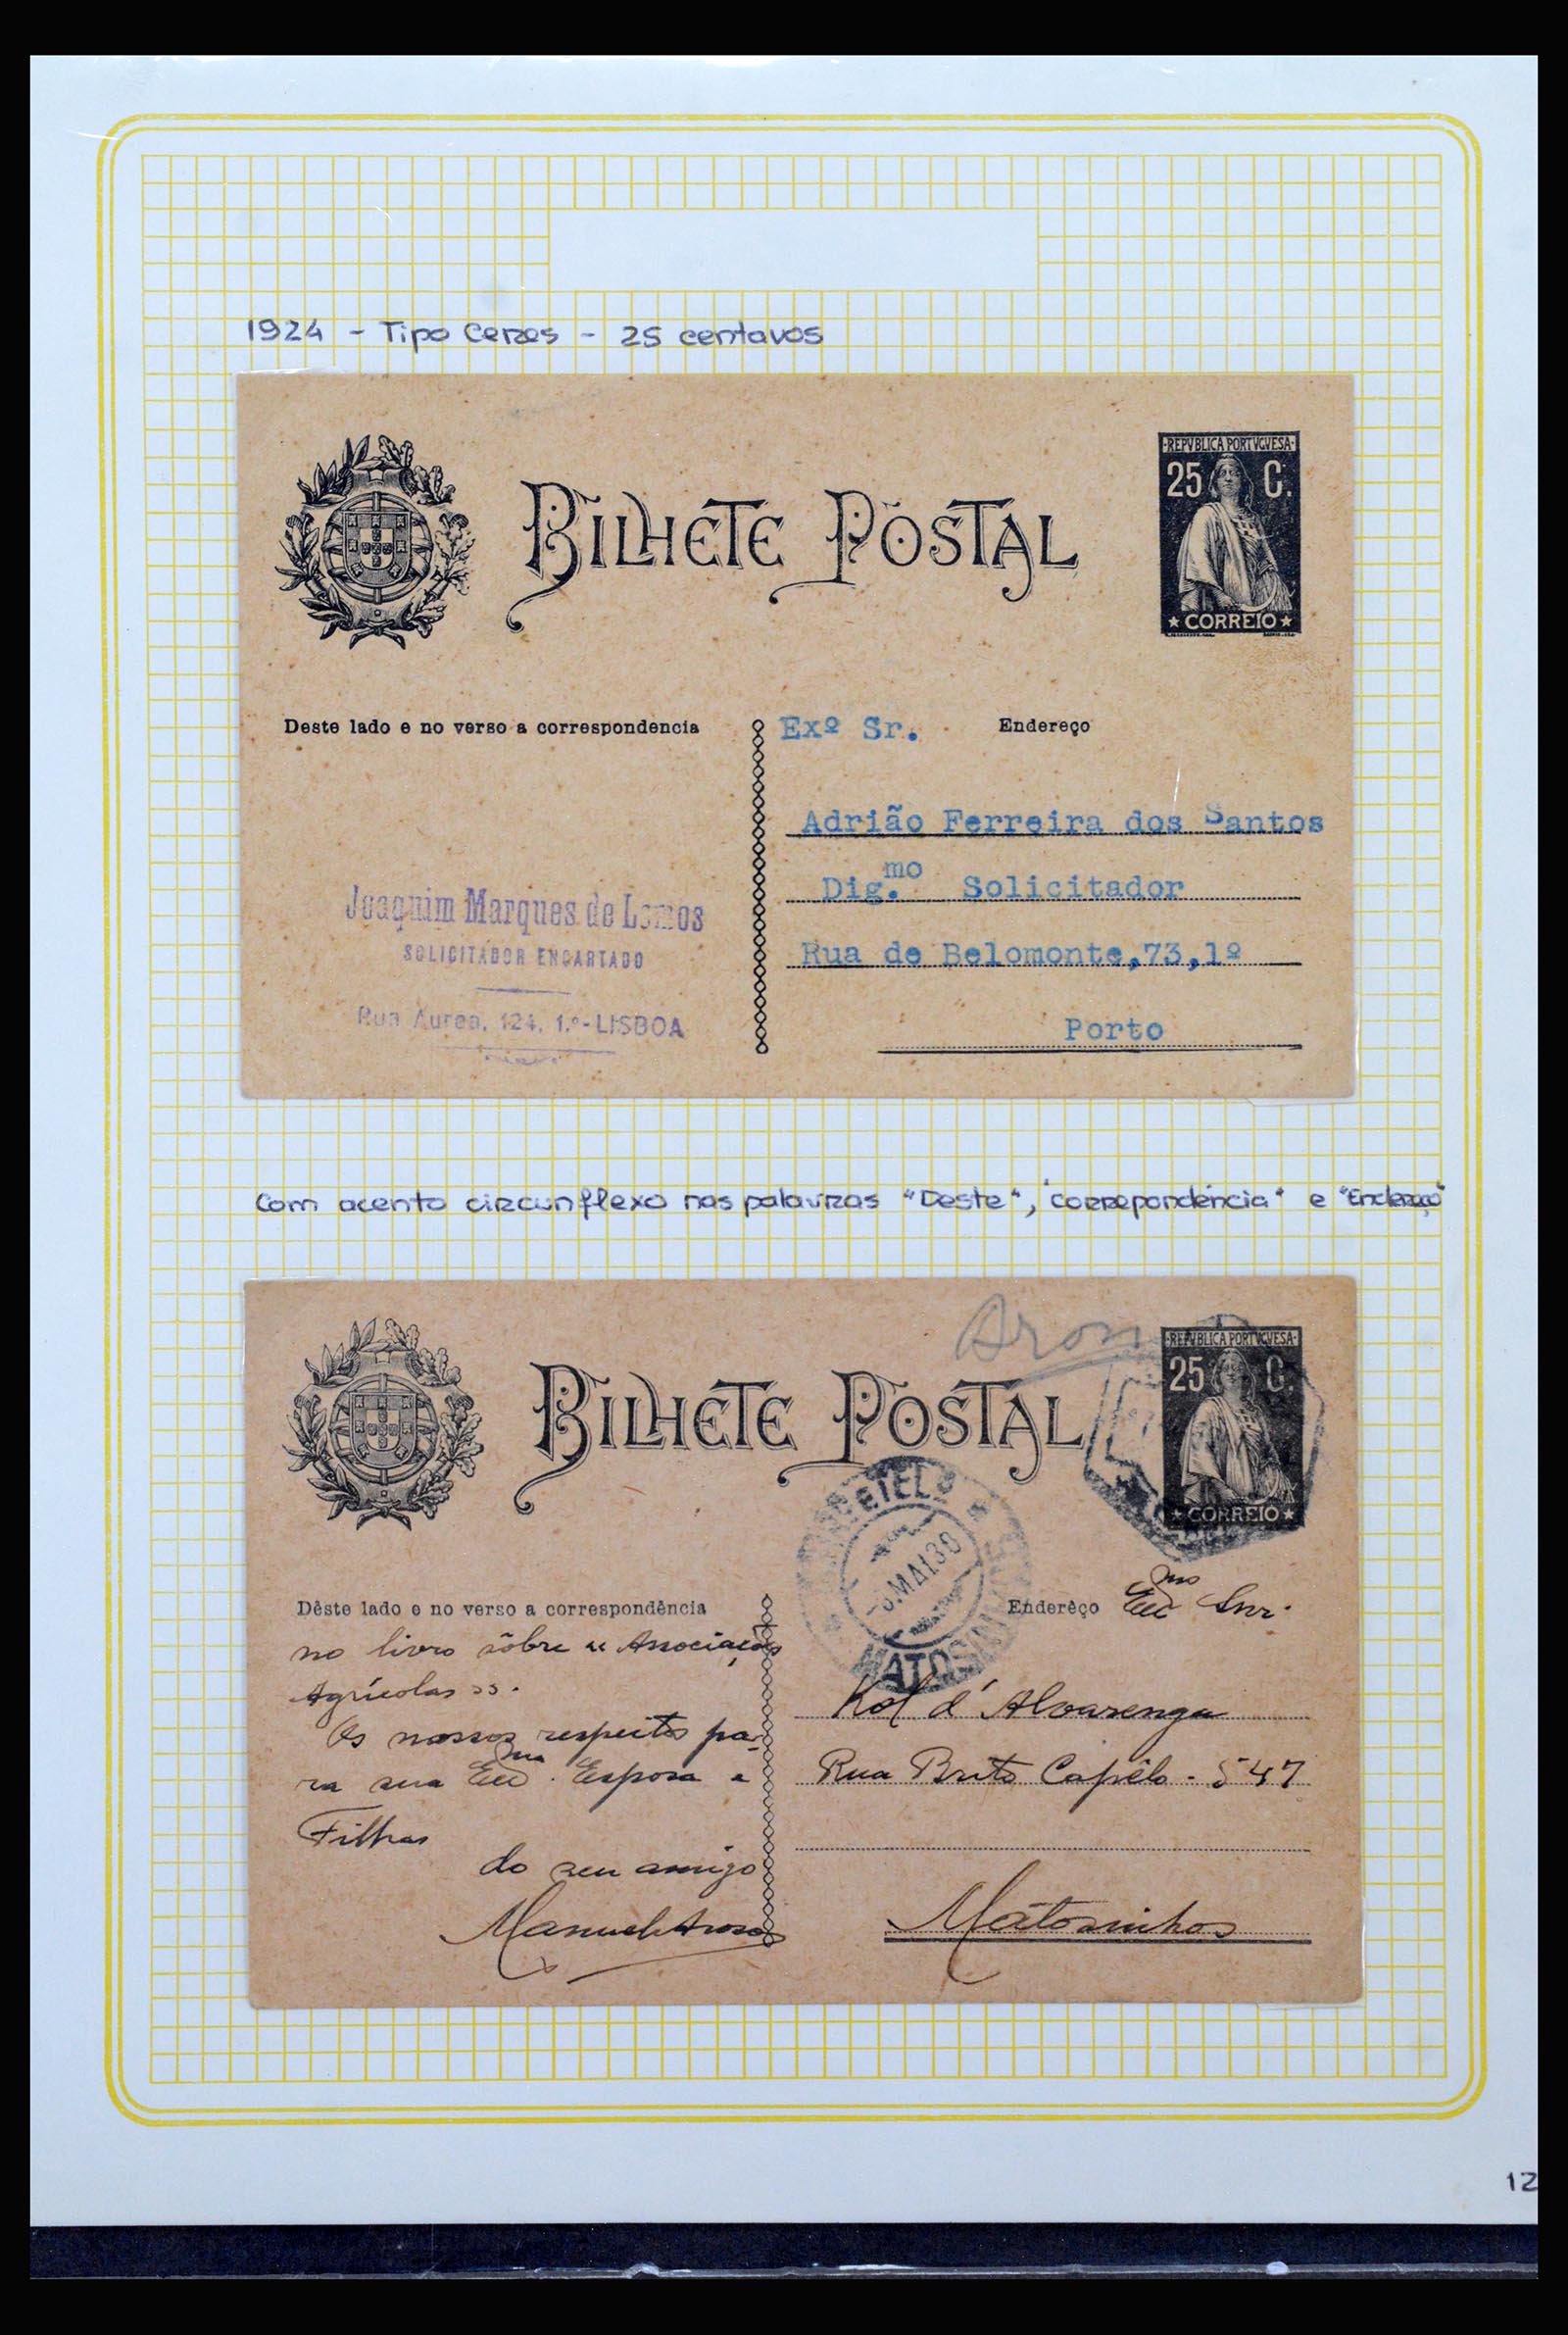 1924 - Tipo Ceres - 25 centavos
BILHETE POSTAL
·REPVBLICA PORTVGVESA·
25 C.
★ CORREIO ★
Deste lado e no verso a correspondencia
Exº Sr. Endereço
Adrião Ferreira dos Santos
Dig.mo Solicitador
Rua de Belomonte,73,1º
Porto
Joaquim Marques de Lemos
SOLICITADOR ENCARTADO
Rua Aurea, 124, 1.º-LISBOA
Com acento circunflexo nas palavras "Deste", "correpondência" e "Endereço"
BILHETE POSTAL
·REPVBLICA PORTVGVESA·
25 C.
★ CORREIO ★
MAI 30
MATOSINHOS
Dêste lado e no verso a correspondência
no livro sôbre "Associações
Agrícolas".
Os nossos respeitos pa-
ra sua Exma. Esposa e
Filhas
do seu amigo
Manuel
Enderêço Exmo Snr.
d'Alvarenga
Rua Brito Capêlo - 547
Matosinhos
12